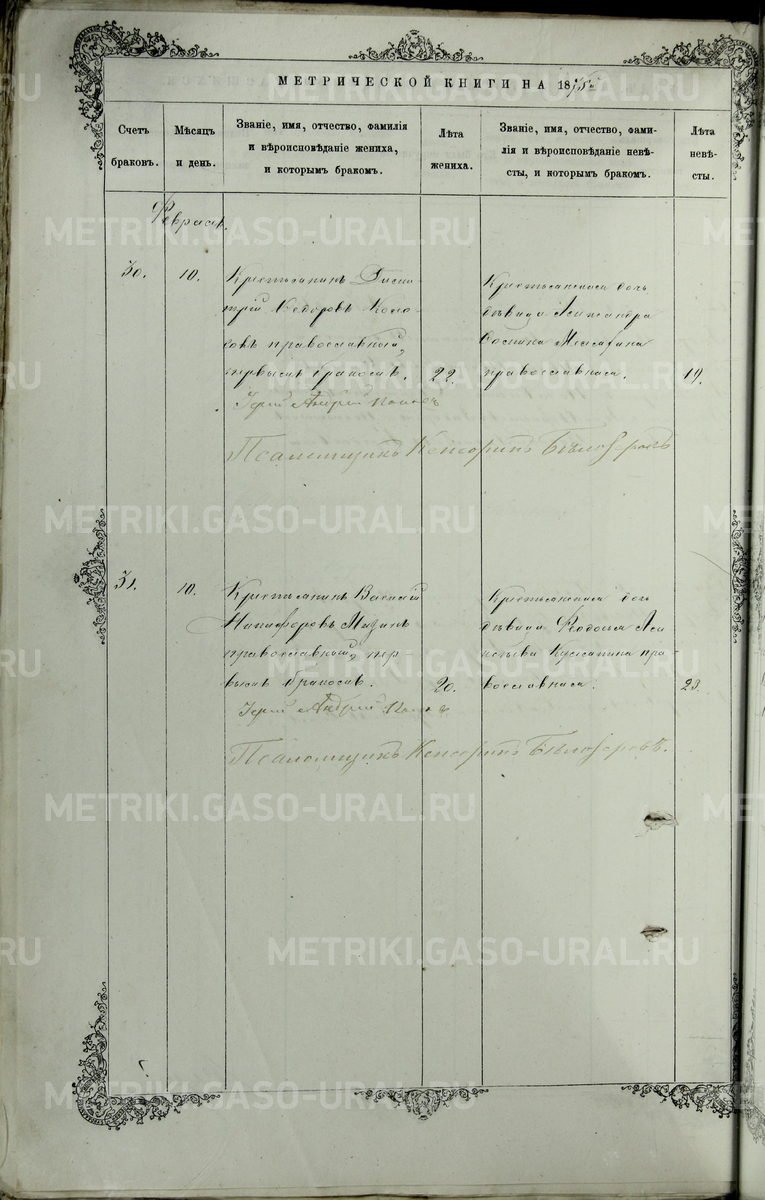 МЕТРИЧЕСКОЙ КНИГИ НА 18
Счетъ браковъ.
Мѣсяцъ и день.
Званіе, имя, отчество, фамилія
и вѣроисповѣданіе жениха,
и которымъ бракомъ.
Лѣта жениха.
Званіе, имя, отчество, фами-
лія и вѣроисповѣданіе невѣ-
сты, и которымъ бракомъ.
Лѣта невѣ-
сты.
30.
10.
Крестьянинъ Дими-
трій Ѳедоровъ
православный,
первымъ бракомъ.
22.
Крестьянская дочь
дѣвица Александра
православная.
19.
Іерей Андрей
Псаломщикъ Кенсоринъ Бѣлозеровъ
31.
10.
Крестьянинъ Василій
Никифоровъ Мизинъ
православный, пер-
вымъ бракомъ.
20.
Крестьянская дочь
дѣвица Ѳеодосья
пра-
вославная.
23.
Іерей Андрей
Псаломщикъ Кенсоринъ Бѣлозеровъ.
METRIKI.GASO-URAL.RU